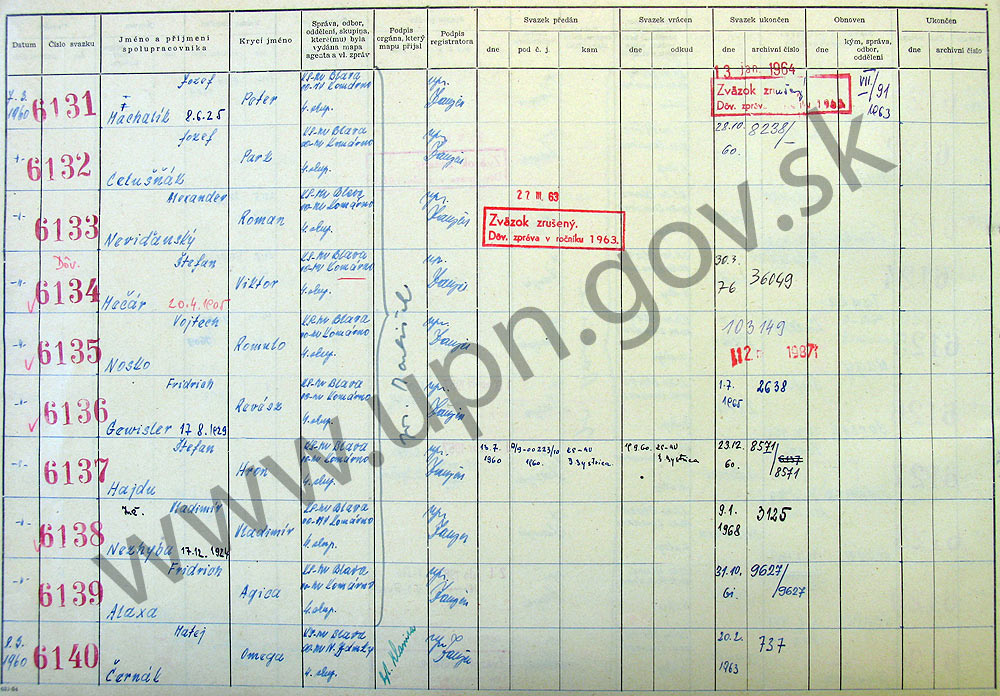 Datum
Číslo svazku
Jméno a příjmení spolupracovníka
Krycí jméno
Správa, odbor, oddělení, skupina, které(mu) byla vydána mapa agenta a vl. zpráv
Podpis orgána, který mapu přijal
Podpis registratora
Svazek předán
dne
pod č. j.
kam
Svazek vrácen
dne
odkud
Svazek ukončen
dne
archivní číslo
Obnoven
dne
kým, správa, odbor, oddělení
Ukončen
dne
archivní číslo
1960
6131
Jozef
Machalík 8.6.25
Peter
KS-MV Blava
oo-MV Komárno
4. skup.
13 jan. 1964
Zväzok zrušený
Dôv. zpráv.
VII/91
1963
6132
Jozef
Celušňák
Park
KS-MV Blava
oo-MV Komárno
4. skup.
28.10.
60.
8238/
6133
Alexander
Neviďanský
Roman
KS-MV Blava
oo-MV Komárno
4. skup.
27 III. 63
Zväzok zrušený.
Dôv. zpráva v ročníku 1963.
Dôv.
6134
Štefan
Mačár 20.4.1905
Viktor
KS-MV Blava
oo-MV Komárno
4. skup.
30.3.
76
36049
6135
Vojtech
Nosko
Romulo
KS-MV Blava
oo-MV Komárno
4. skup.
103149
1987
6136
Fridrich
Gewisler 17.8.1929
Revász
KS-MV Blava
oo-MV Komárno
4. skup.
1.7.
2638
6137
Štefan
Hajdu
Hron
KS-MV Blava
oo-MV Komárno
4. skup.
1960
B. Bystrica
B. Bystrica
23.12.
60.
8571/
8571
6138
Vladimír
Nezhyba 17.12.1924
Vladimír
KS-MV Blava
oo-MV Komárno
4. skup.
9.1.
1968
3125
6139
Fridrich
Alaxa
Agica
KS-MV Blava
oo-MV Komárno
4. skup.
31.10.
61.
9627/
/9627
1960
6140
Matej
Černák
Omega
KS-MV Blava
4. skup.
20.2.
1963
737
www.upn.gov.sk